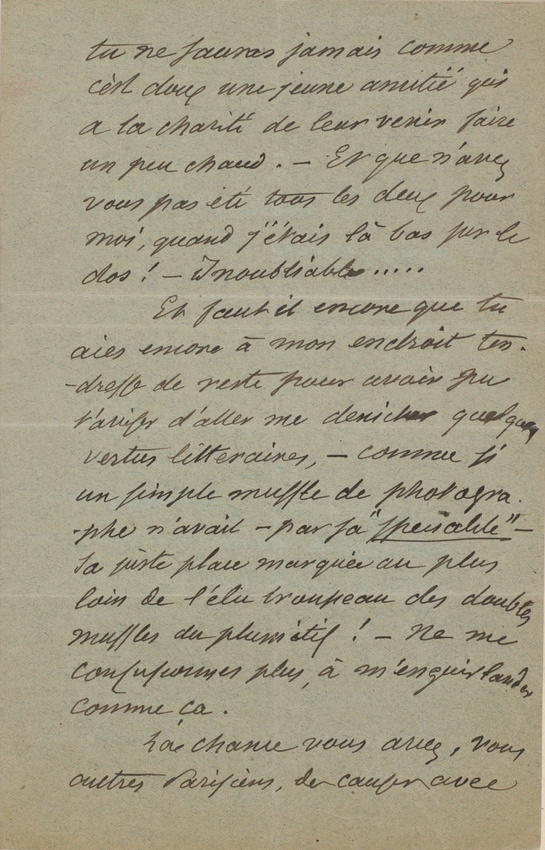 tu ne sauras jamais comme
c'est doux une jeune amitié qui
a la charité de leur venir faire
un peu chaud. — Et que n'avez
vous pas été tous les deux pour
moi, quand j'étais là bas sur le
dos ! — Inoubliable.....
Et faut il encore que tu
aies encore à mon endroit ten-
-dresse de reste pour avoir pu
t'aviser d'aller me denicher quelques
vertus litteraires, — comme si
un simple muffle de photogra-
-phe n'avait — par sa "specialité" —
sa juste place marquée au plus
loin de l'élu troupeau des doubles
muffles du plumitif ! — Ne me
plus, à m'enguirlander
comme ca.
La chance vous avez, vous
autres Parisiens, de causer avec